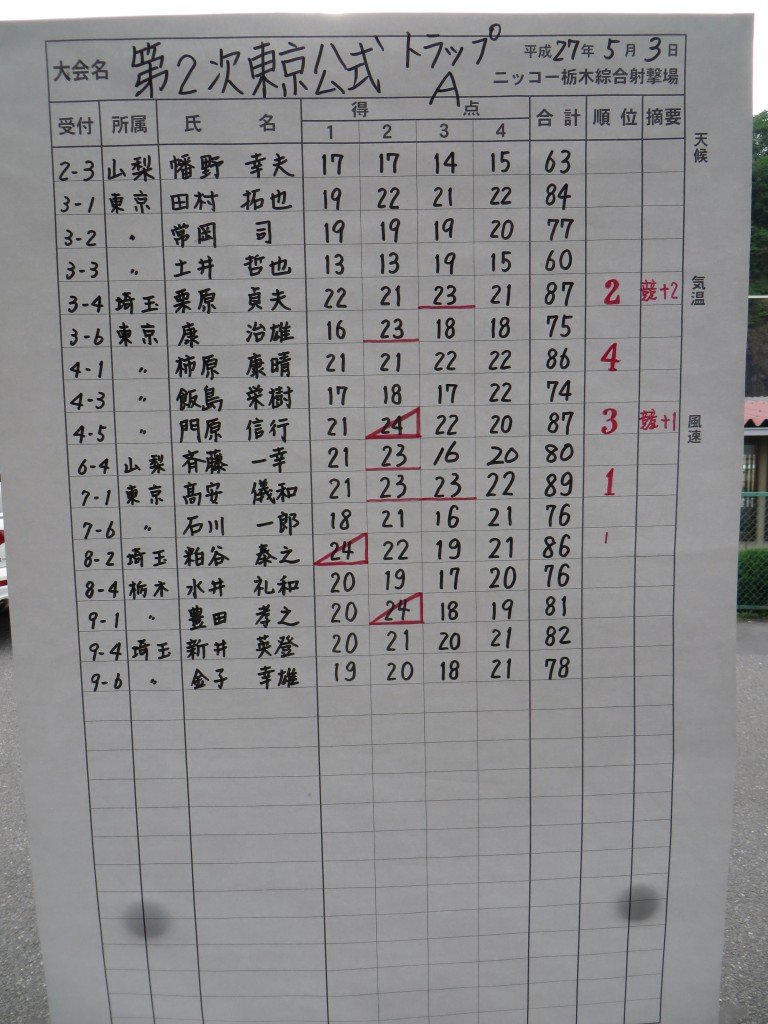 大会名 第2次東京公式 トラップ A 平成27年5月3日
ニッコー栃木綜合射撃場
受付 所属 氏名 得点 合計 順位 摘要
1 2 3 4
天候
2-3 山梨 幡野 幸夫 17 17 14 15 63
3-1 東京 田村 拓也 19 22 21 22 84
3-2 〃 常岡 司 19 19 19 20 77
3-3 〃 土井 哲也 13 13 19 15 60
3-4 埼玉 栗原 貞夫 22 21 23 21 87 2 競+2
気温
3-6 東京 康 治雄 16 23 18 18 75
4-1 〃 柿原 康晴 21 21 22 22 86 4
4-3 〃 飯島 栄樹 17 18 17 22 74
4-5 〃 門原 信行 21 24 22 20 87 3 競+1
風速
6-4 山梨 斉藤 一幸 21 23 16 20 80
7-1 東京 髙安 儀和 21 23 23 22 89 1
7-6 〃 石川 一郎 18 21 16 21 76
8-2 埼玉 粕谷 泰之 24 22 19 21 86
8-4 栃木 水井 礼和 20 19 17 20 76
9-1 〃 豊田 孝之 20 24 18 19 81
9-4 埼玉 新井 英登 20 21 20 21 82
9-6 〃 金子 幸雄 19 20 18 21 78